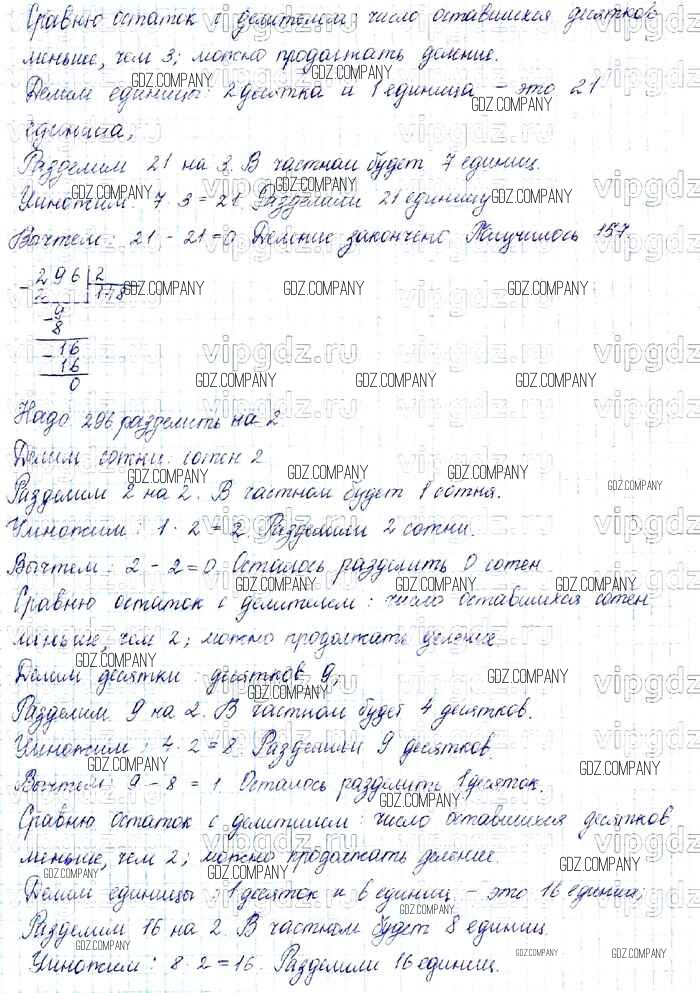 Сравню остаток с делителем: число оставшихся десятков
меньше, чем 3; можно продолжать деление.
Делим единицы: 2 десятка и 1 единица – это 21
единица;
Разделим 21 на 3. В частном будет 7 единиц.
Умножим: 7 · 3 = 21. Разделили 21 единицу
Вычтем: 21 - 21 = 0. Деление закончено. Получилось 157.
- 296 | 2
2 148
- 9
8
- 16
16
0
Надо 296 разделить на 2
Делим сотни: сотен 2
Разделим 2 на 2. В частном будет 1 сотня.
Умножим: 1 · 2 = 2. Разделили 2 сотни.
Вычтем: 2 - 2 = 0. Осталось разделить 0 сотен
Сравню остаток с делителем: число оставшихся сотен
меньше, чем 2; можно продолжать деление.
Делим десятки: десятков 9;
Разделим 9 на 2. В частном будет 4 десятков.
Умножим: 4 · 2 = 8. Разделили 9 десятков.
Вычтем: 9 - 8 = 1. Осталось разделить 1 десяток.
Сравню остаток с делителем: число оставшихся десятков
меньше, чем 2; можно продолжать деление.
Делим единицы: 1 десяток и 6 единиц – это 16 единиц;
Разделим 16 на 2. В частном будет 8 единиц.
Умножим: 8 · 2 = 16. Разделили 16 единиц.